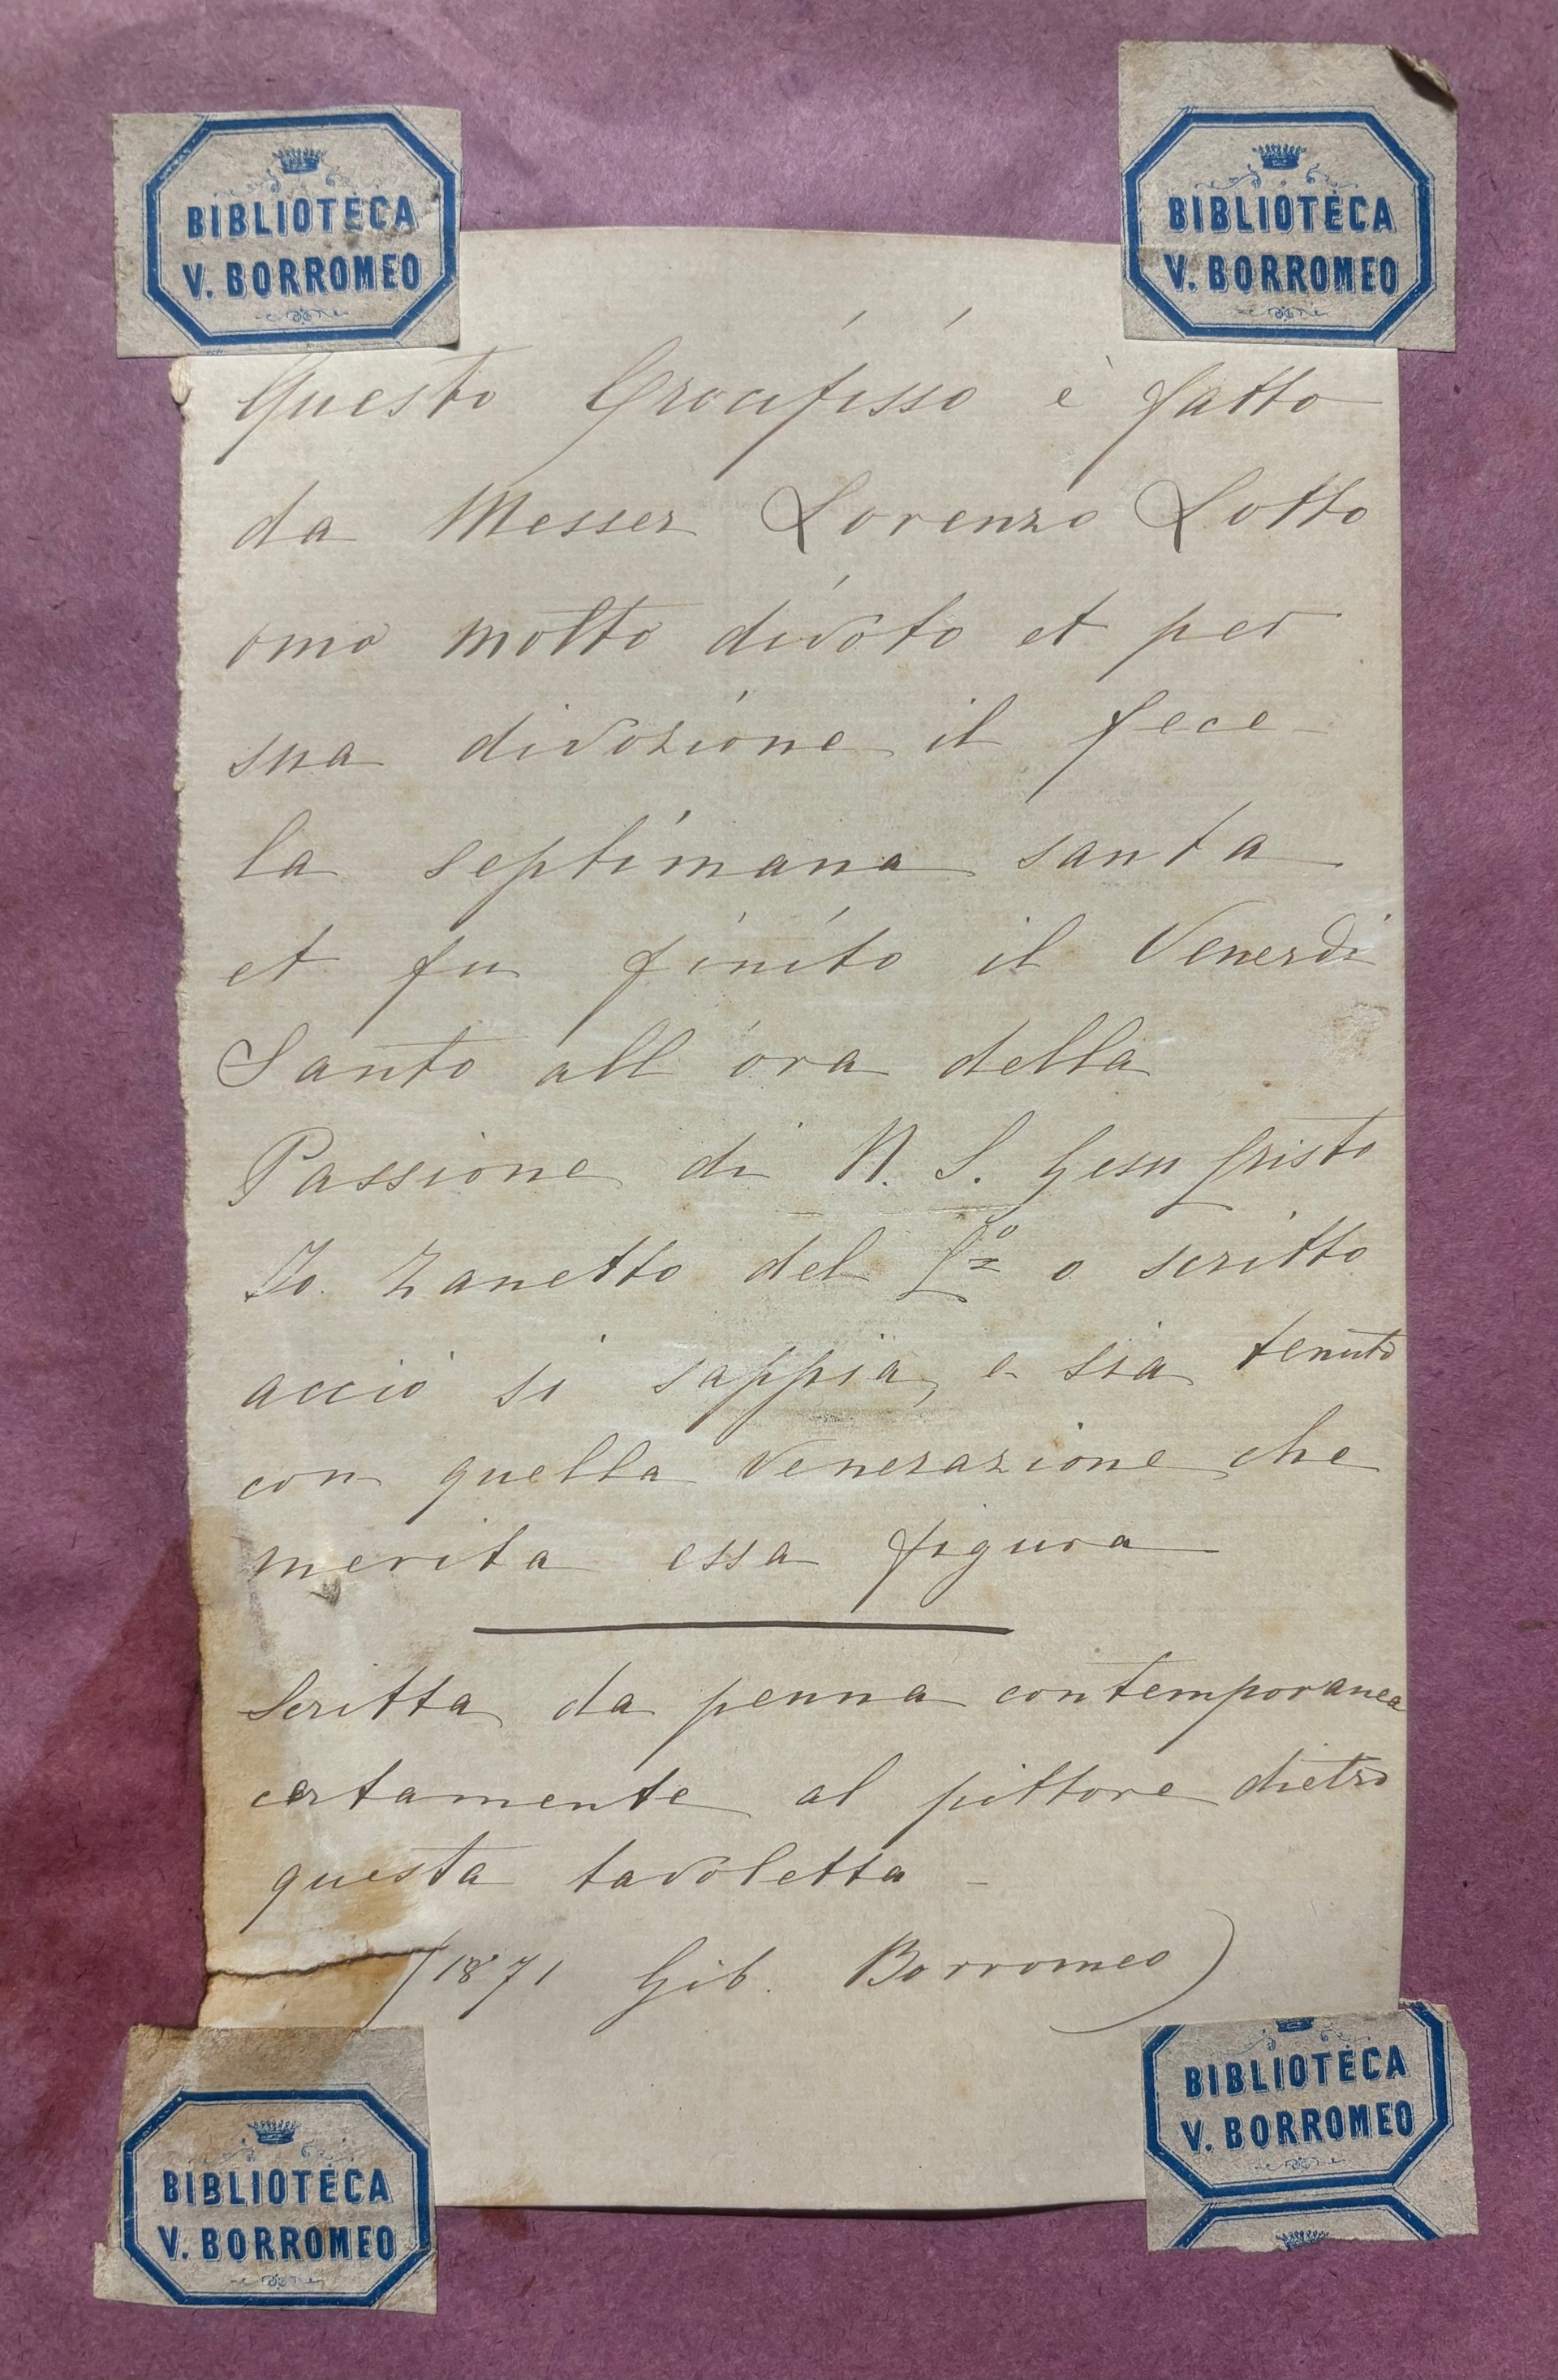 BIBLIOTECA
V. BORROMEO
BIBLIOTECA
V. BORROMEO
Questo Crocifisso è fatto
da Messer Lorenzo Lotto
omo molto divoto et per
sua divozione il fece
la septimana santa
et fu finito il Venerdi
Santo all'ora della
Passione di N. S. Gesu Cristo
Io. Zanetto del Cº o scritto
acciò si sappia, e sia tenuto
con quella Venerazione che
merita essa figura
Scritta da penna contemporanea
certamente al pittore dietro
questa tavoletta -
(1871 Gib. Borromeo)
BIBLIOTECA
V. BORROMEO
BIBLIOTECA
V. BORROMEO